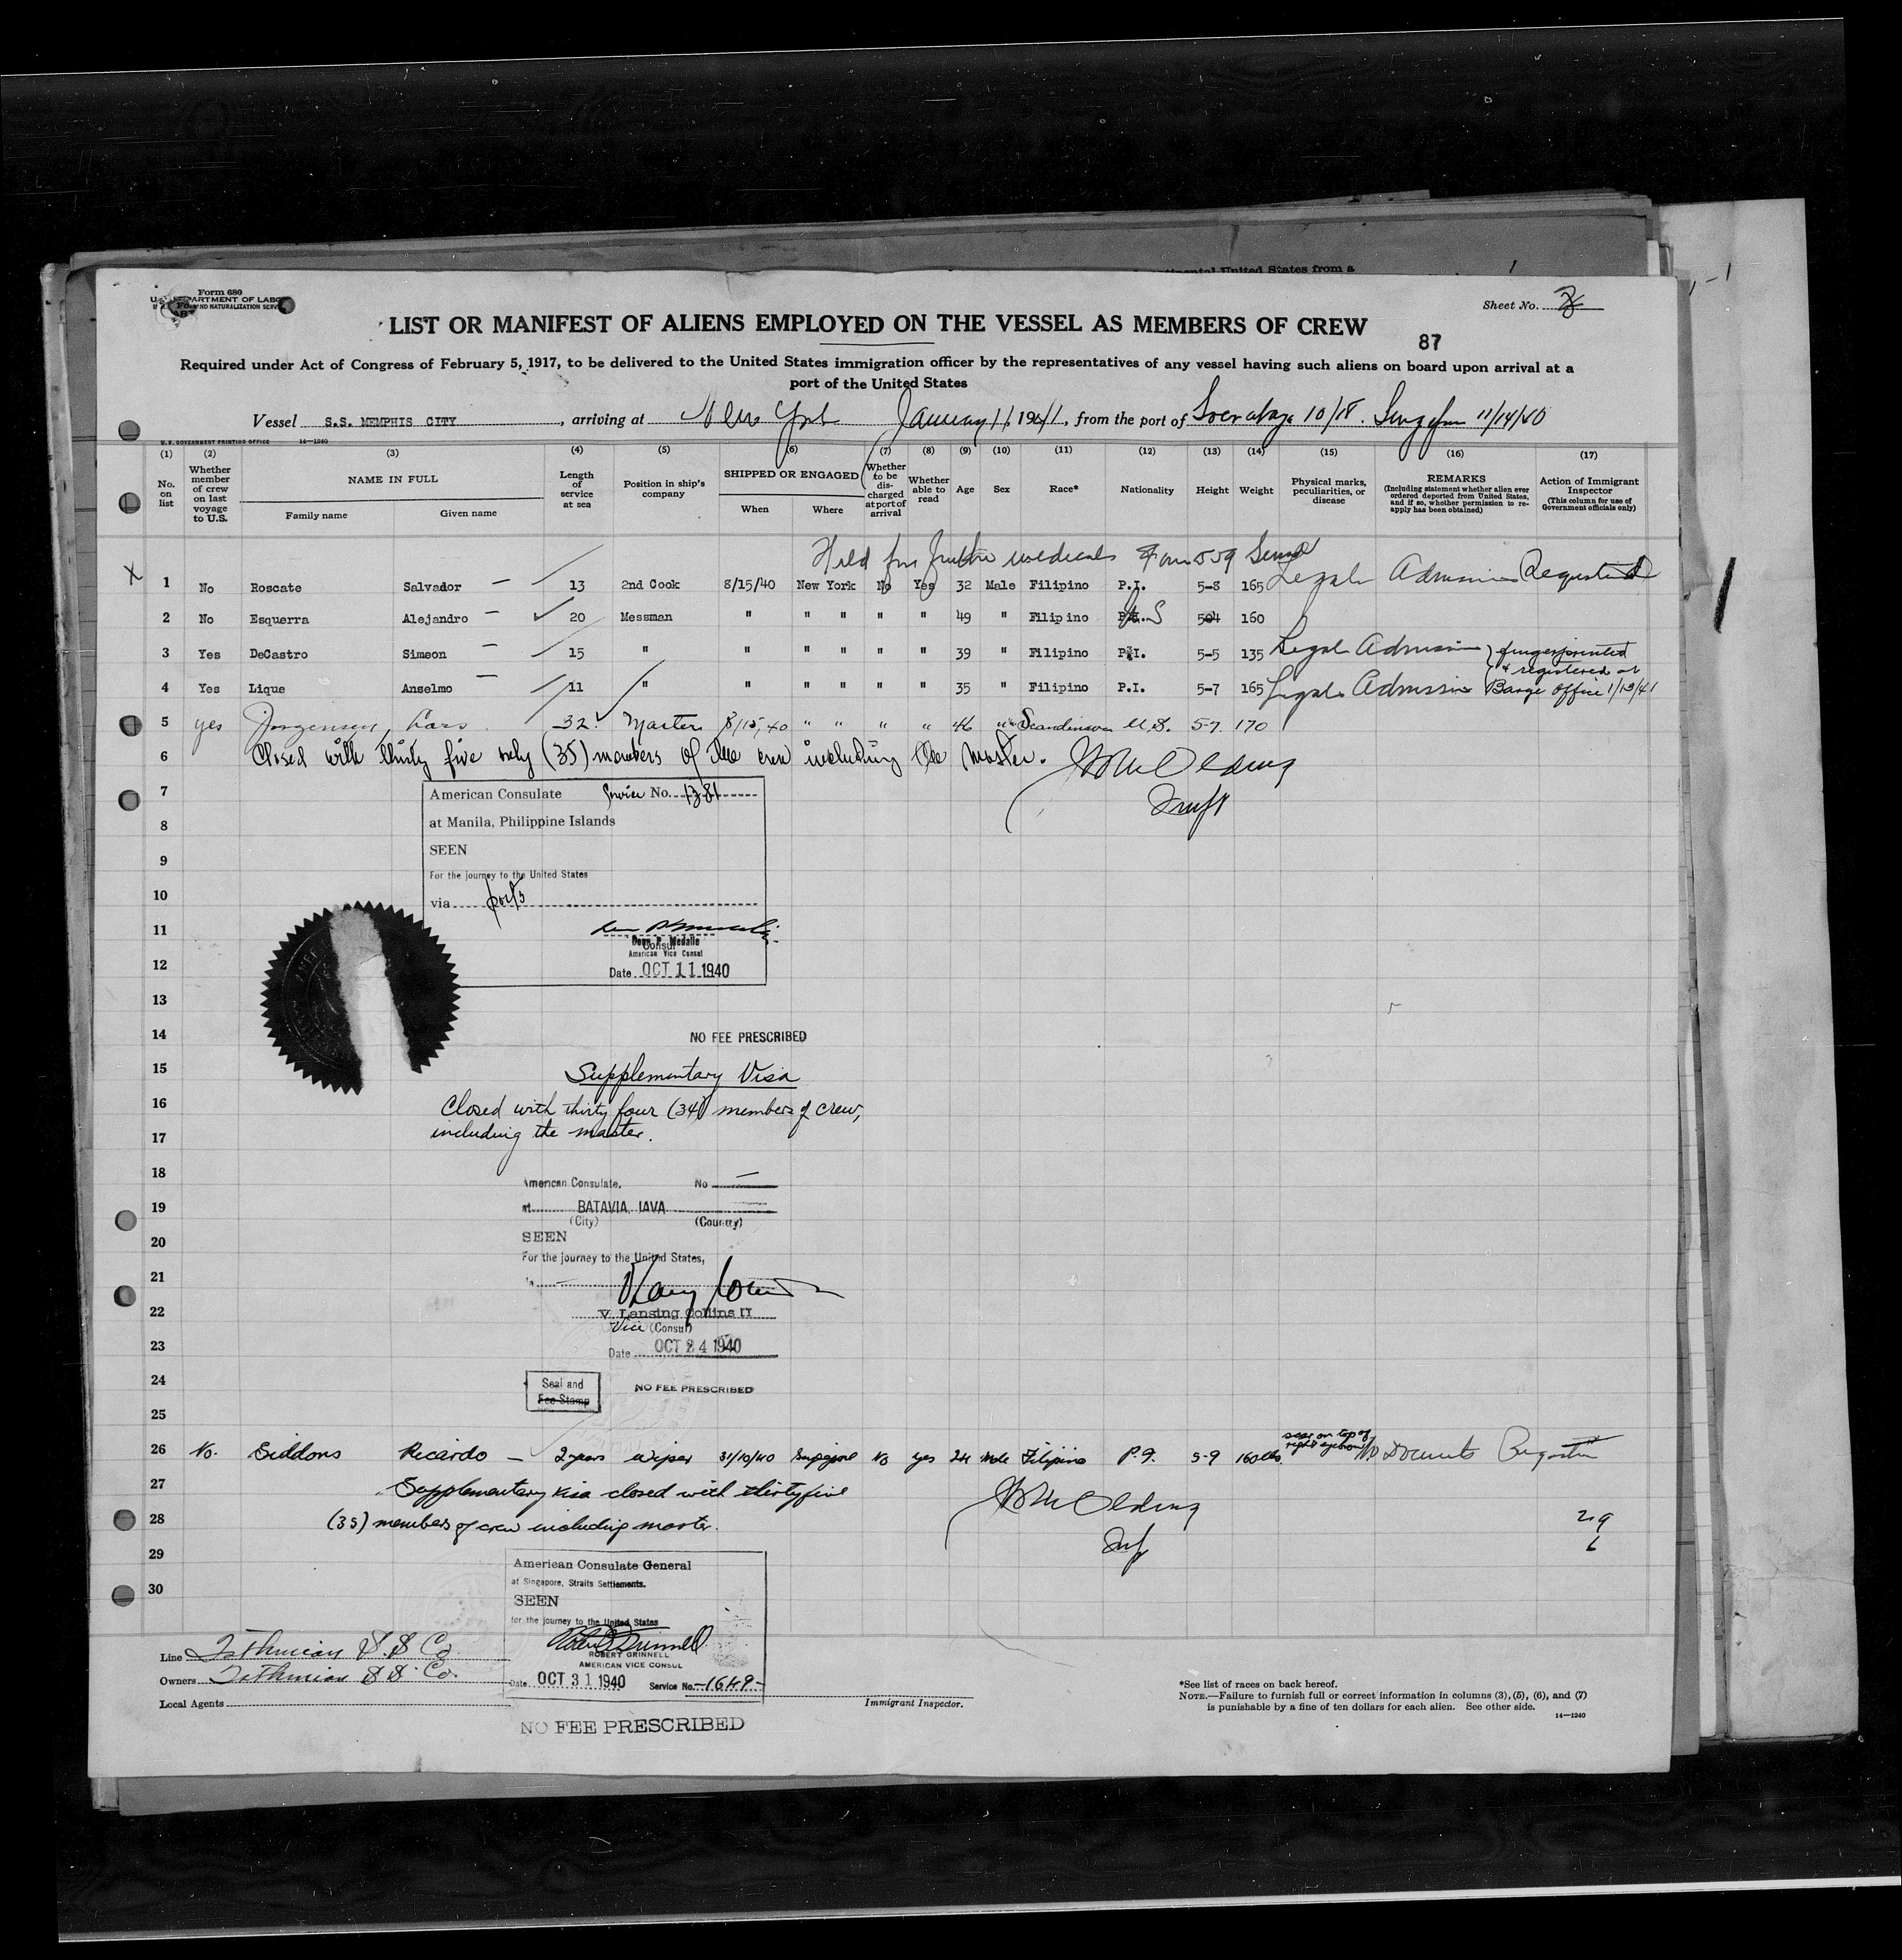 Form 680
LIST OR MANIFEST OF ALIENS EMPLOYED ON THE VESSEL AS MEMBERS OF CREW
Sheet No.
87
Required under Act of Congress of February 5, 1917, to be delivered to the United States immigration officer by the representatives of any vessel having such aliens on board upon arrival at a
port of the United States
Vessel S.S. MEMPHIS CITY, arriving at New York January 11, 1941, from the port of Soerabaya 10/18. 11/14/40
U.S. GOVERNMENT PRINTING OFFICE 14—1240
(1) (2) (3) (4) (5) (6) (7) (8) (9) (10) (11) (12) (13) (14) (15) (16) (17)
No. on list
Whether member of crew on last voyage to U.S.
NAME IN FULL
Family name Given name
Length of service at sea
Position in ship's company
SHIPPED OR ENGAGED
When Where
Whether to be discharged at port of arrival
Whether able to read
Age
Sex
Race*
Nationality
Height
Weight
Physical marks, peculiarities, or disease
REMARKS
(Including statement whether alien ever ordered deported from United States, and if so, whether permission to reapply has been obtained)
Action of Immigrant Inspector
(This column for use of Government officials only)
Held for further medical Form 559
X 1 No Roscate Salvador — 13 2nd Cook 8/15/40 New York No Yes 32 Male Filipino P.I. 5-8 165 Legal Admission Requested
2 No Esquerra Alejandro — 20 Messman " " " " " 49 " Filipino U.S 504 160
3 Yes DeCastro Simeon — 15 " " " " " " 39 " Filipino P.I. 5-5 135 Legal Admission } fingerprinted
& registered at
4 Yes Lique Anselmo — 11 " " " " " " 35 " Filipino P.I. 5-7 165 Legal Admission Barge Office 1/13/41
5 yes Jorgensen, Lars 32 Master 8/15/40 " " " " 46 " Scandinavian U.S. 5-7 170
6 Closed with thirty five only (35) members of the crew including the Master.
7
American Consulate Service No. 1381
8
at Manila, Philippine Islands
SEEN
9
For the journey to the United States
10
via ports
11
Consul
American Vice Consul
12
Date OCT 11 1940
13
14
NO FEE PRESCRIBED
15
Supplementary Visa
16
Closed with thirty four (34) members of crew,
17
including the master.
18
American Consulate, No —
19
at BATAVIA, JAVA
(City) (Country)
20
SEEN
For the journey to the United States,
21
22
V. Lansing Collins II
Vice (Consul)
23
Date OCT 24 1940
24
Seal and
Fee Stamp
NO FEE PRESCRIBED
25
scar on top of
right eyebrow
26 No. Siddons Ricardo — 2 years Wiper 31/10/40 Singapore No yes 24 Male Filipino P.I. 5-9 160 lbs. No Documents
27 Supplementary visa closed with thirty five
28 (35) members of crew including master.
29
6
29
American Consulate General
at Singapore, Straits Settlements.
30
SEEN
for the journey to the United States
ROBERT GRINNELL
AMERICAN VICE CONSUL
Date OCT 31 1940 Service No. —1649—
Line Isthmian S.S Co.
Owners Isthmian S.S. Co.
Local Agents
Immigrant Inspector.
NO FEE PRESCRIBED
*See list of races on back hereof.
NOTE.—Failure to furnish full or correct information in columns (3), (5), (6), and (7)
is punishable by a fine of ten dollars for each alien. See other side.
14—1240